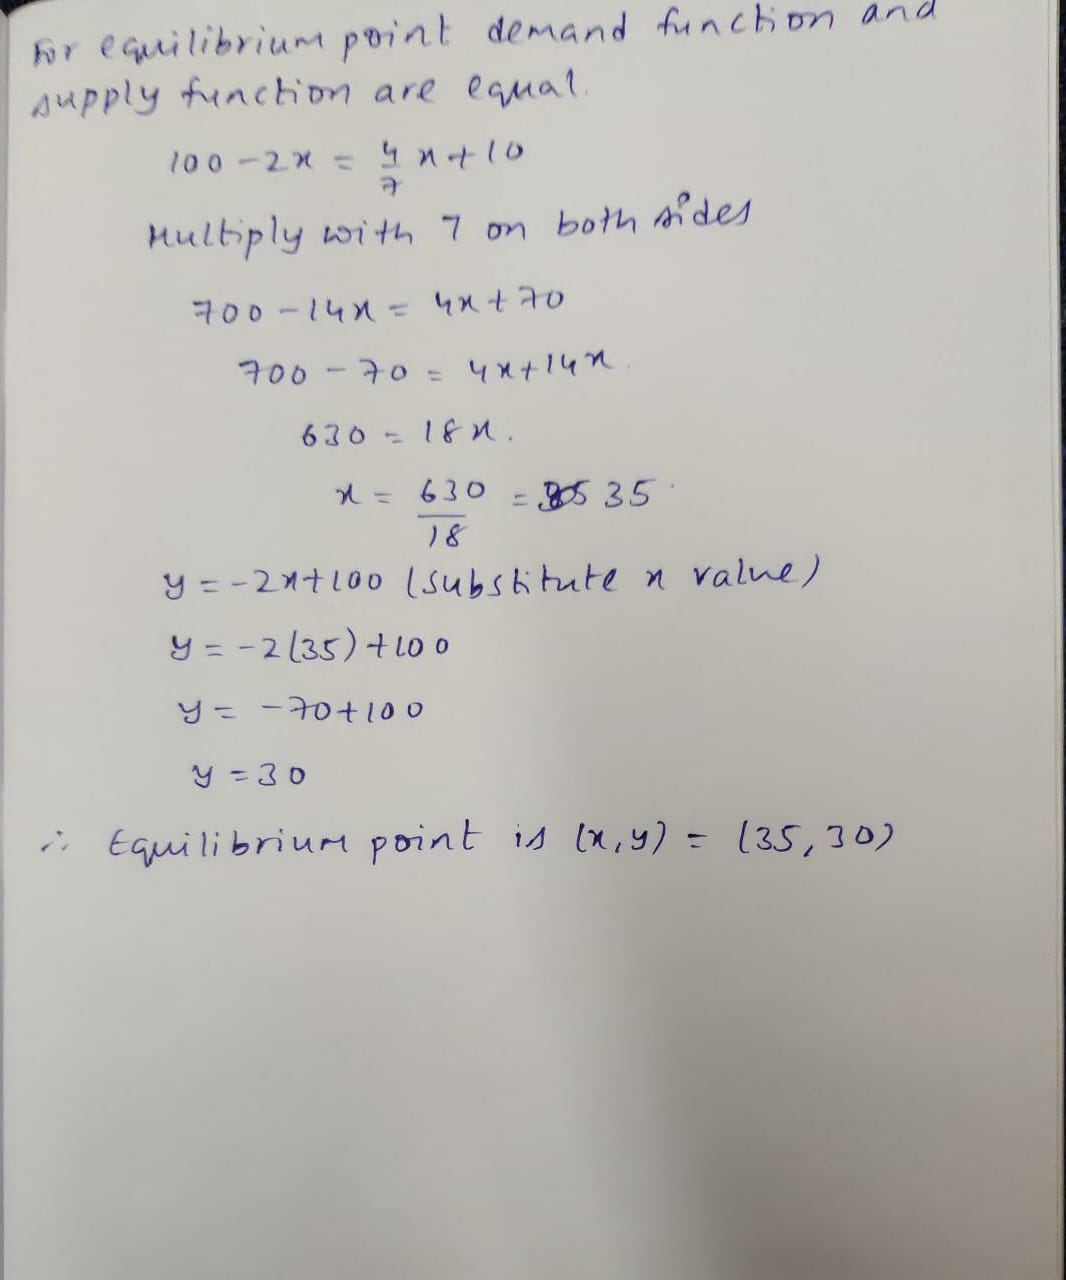 For equilibrium point demand function and
supply function are equal.
100 - 2x = 4/7 x + 10
Multiply with 7 on both sides
700 - 14x = 4x + 70
700 - 70 = 4x + 14x.
630 = 18x.
x = 630/18 = 35
y = -2x+100 (substitute x value)
y = -2(35)+100
y = -70+100
y = 30
∴ Equilibrium point is (x,y) = (35,30)